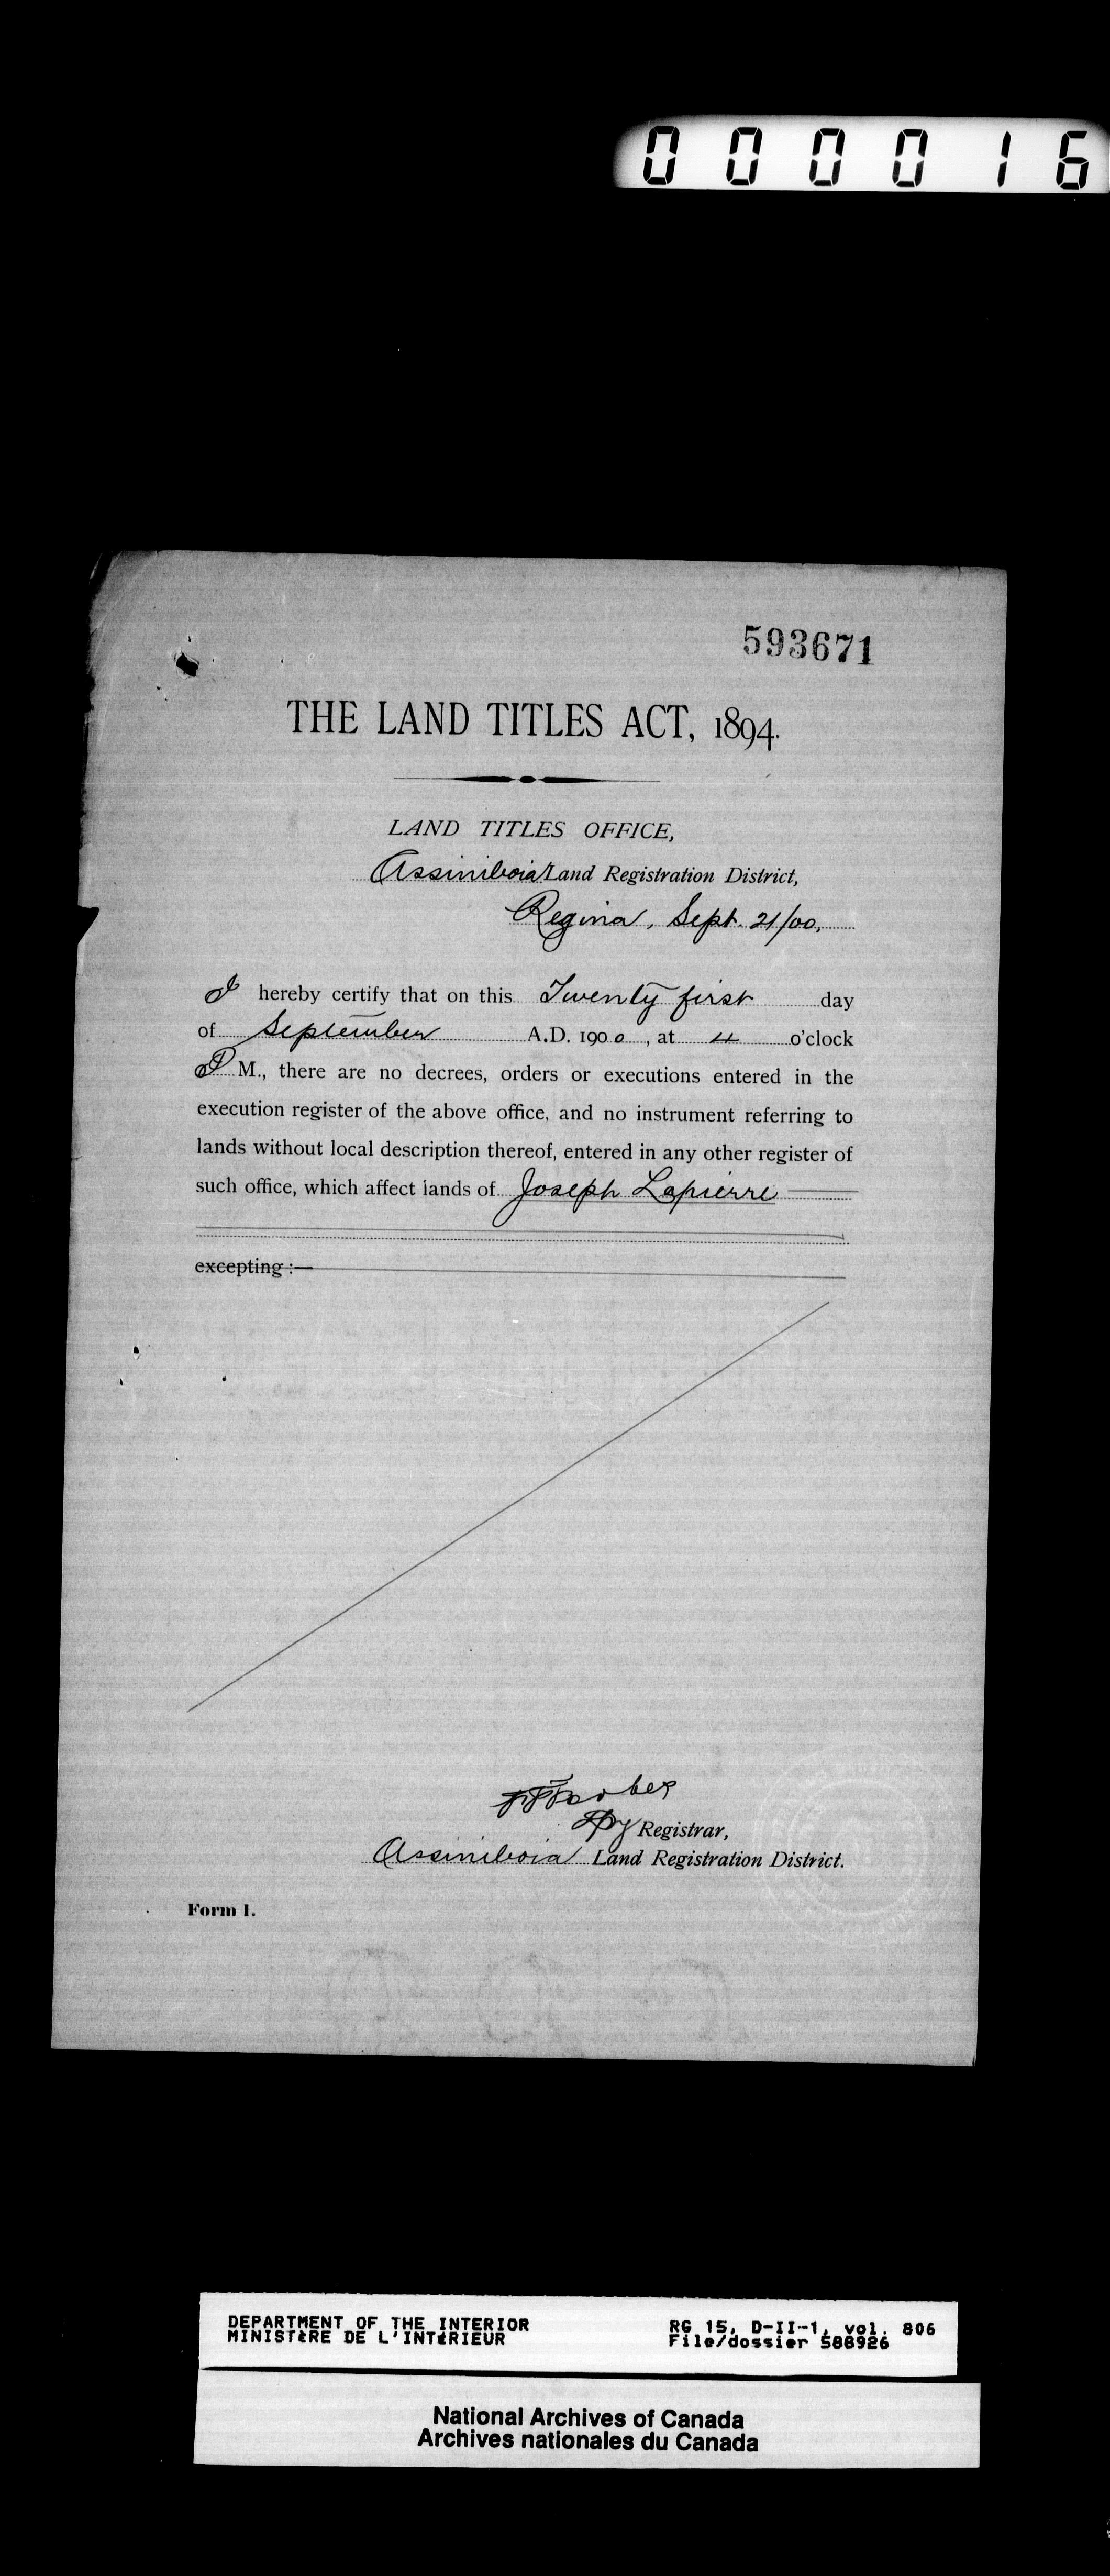 000016
593671
THE LAND TITLES ACT, 1894.
LAND TITLES OFFICE,
Assiniboia Land Registration District,
Regina, Sept. 21/00,
I hereby certify that on this Twenty first day
of September A.D. 1900, at 4 o'clock
P M., there are no decrees, orders or executions entered in the
execution register of the above office, and no instrument referring to
lands without local description thereof, entered in any other register of
such office, which affect lands of Joseph Lapierre
excepting :—
Dy Registrar,
Assiniboia Land Registration District.
Form 1.
DEPARTMENT OF THE INTERIOR RG 15, D-II-1, vol. 806
MINISTÈRE DE L'INTÉRIEUR File/dossier 588926
National Archives of Canada
Archives nationales du Canada